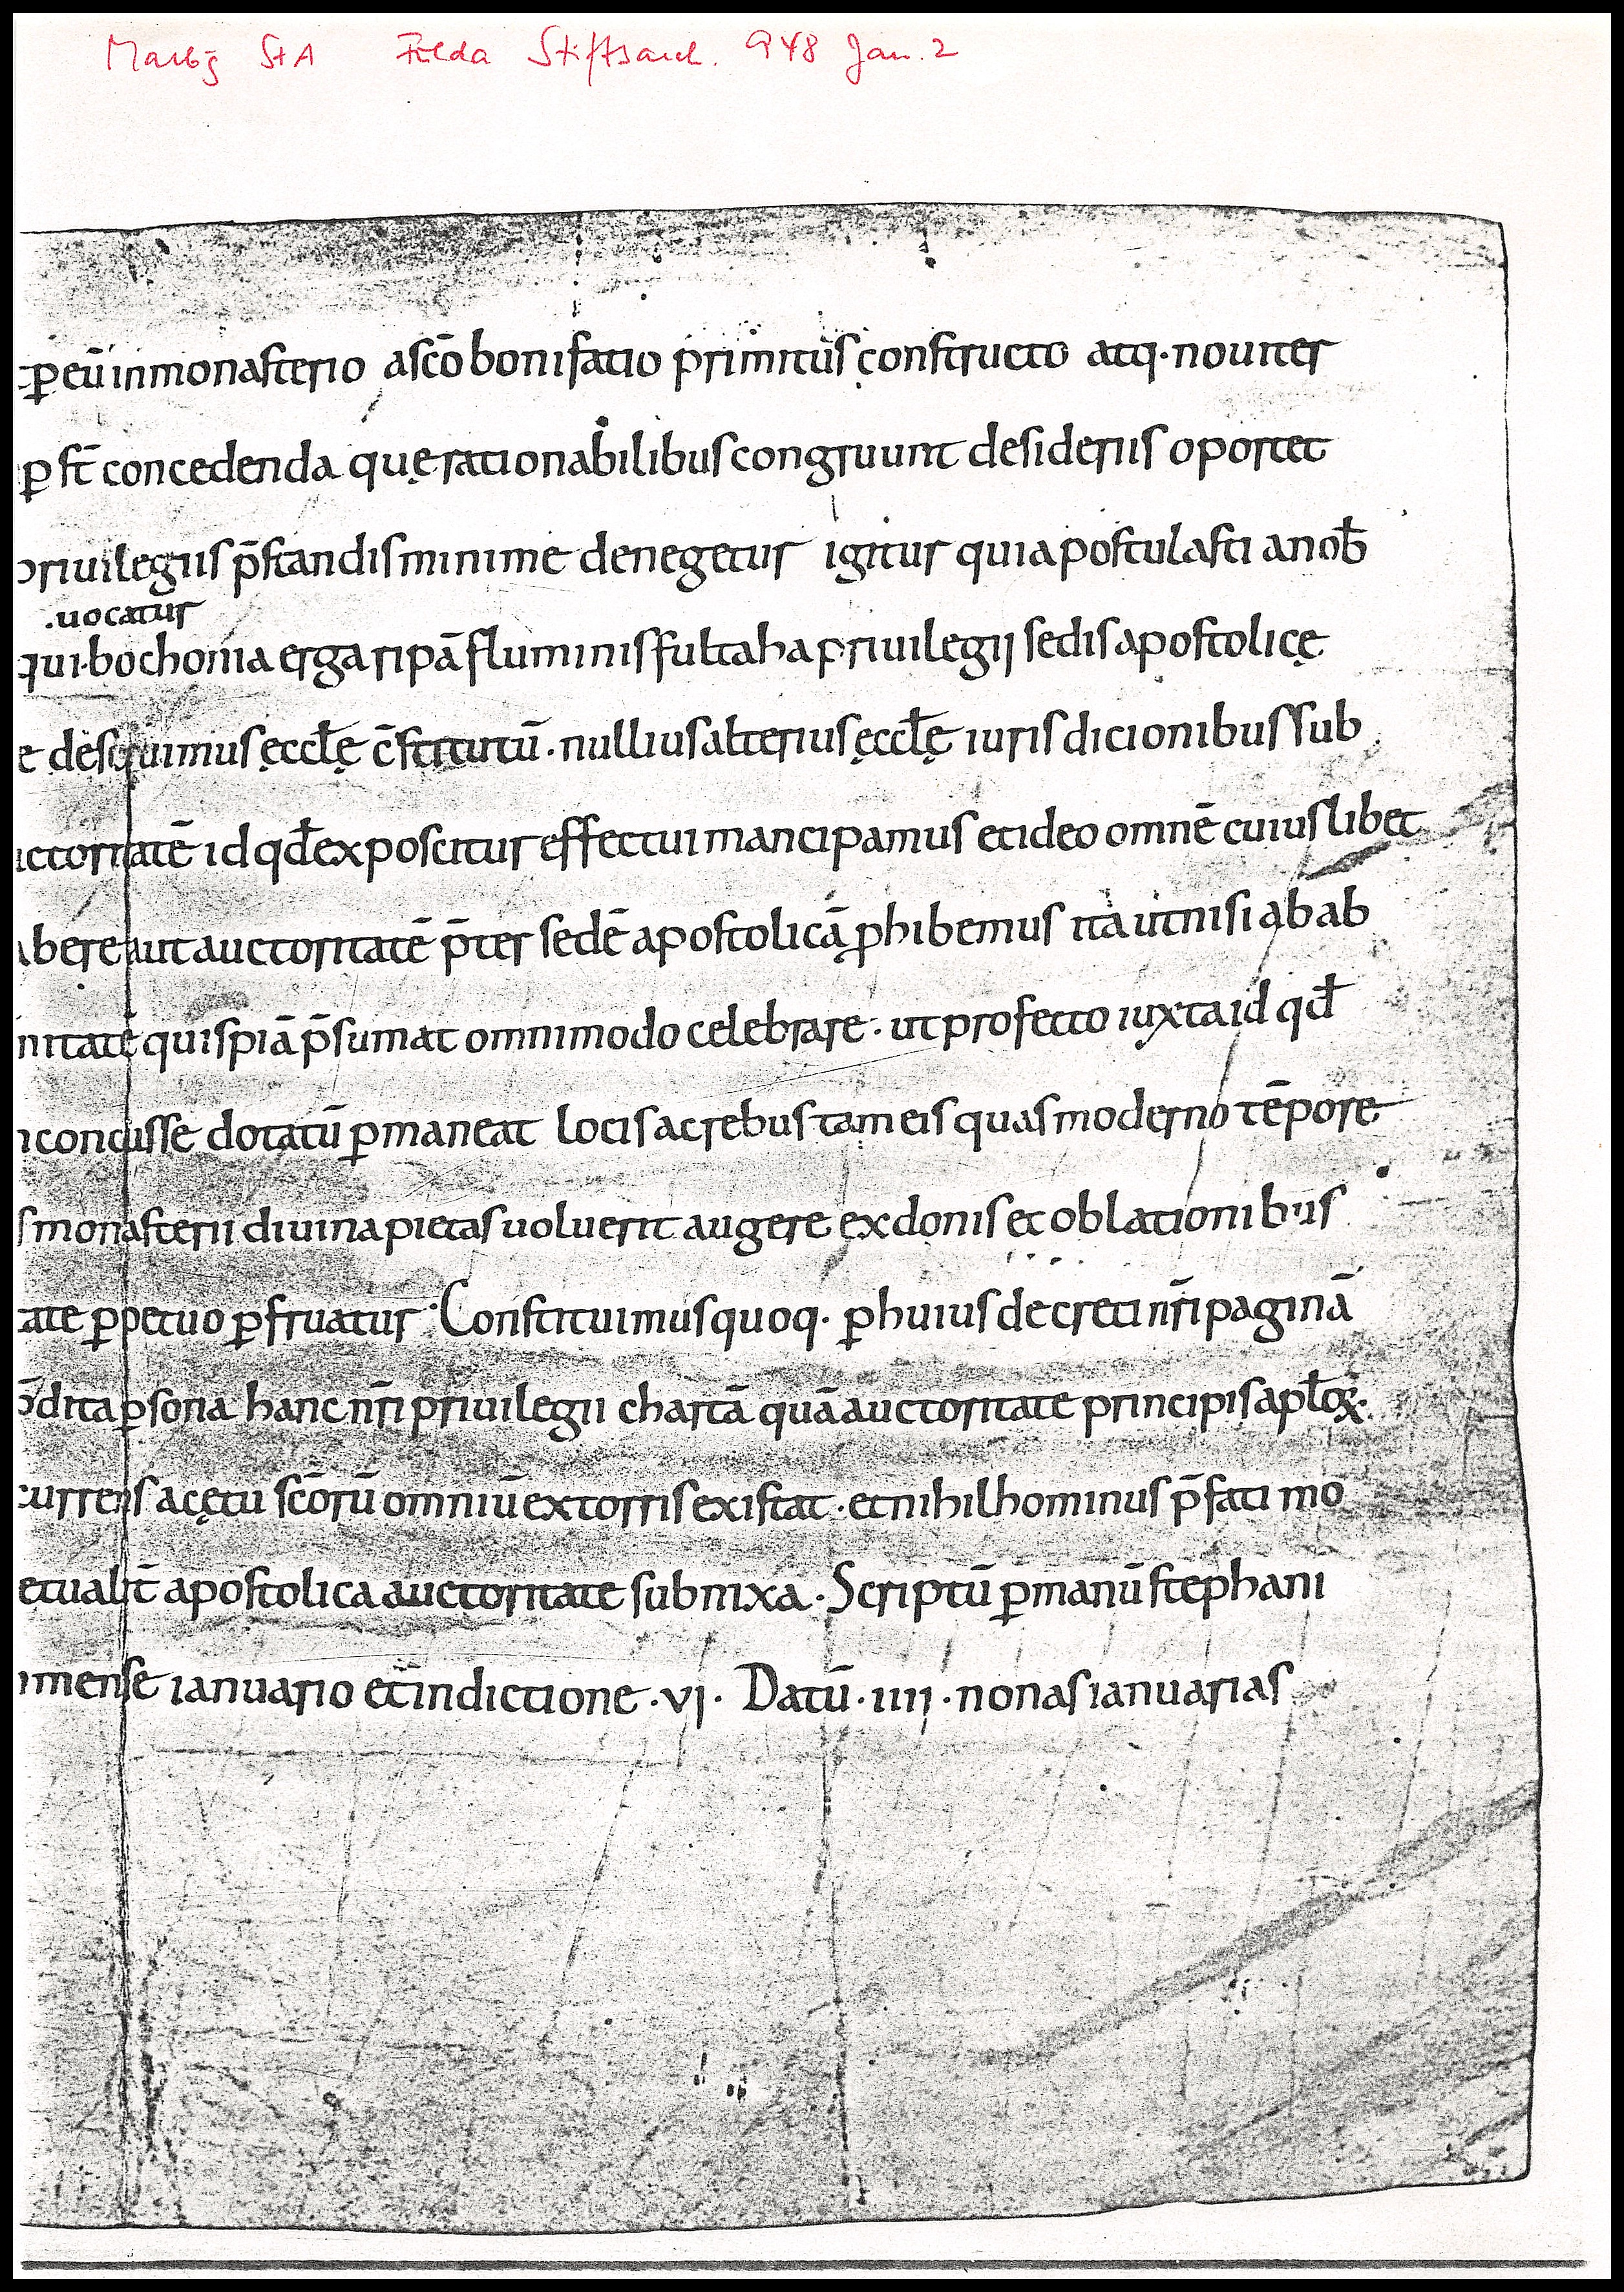 Marbg StA Fulda Stiftsarch. 948 Jan. 2
p̱ eū in monasterio a sc̄o bonifatio primitus constructo atq· nouiter
p̱ st̄ concedenda quę rationabilibus congruunt desideriis oportet
priuilegiis p̄standis minime denegetur igitur quia postulasti a nob̄
.uocatur
qui· bochonia erga ripā fluminis fultaha priuilegij sedis apostolicę
e deseruimus ęccl̄ę c̄stitutū · nullius alterius ęccl̄ę iurisdicionibus sub
uctoritatē id qd̄ exposcitur effectui mancipamus et ideo omnē cuiuslibet
abere aut auctoritatē p̄ter sedē apostolicā ꝓhibemus ita ut nisi ab ab
nitatē quispiā p̄sumat omnimodo celebrare · ut profecto iuxta id qd̄
inconcusse dotatū ꝑmaneat locis ac rebus tam eis quas moderno tēpore
s monasterii diuina pietas uoluerit augere ex donis et oblationibus
tate ꝑpetuo ꝑfruatur · Constituimus quoq· ꝑ huius decreti nr̄i paginā
p̄dita ꝑsona hanc nr̄i priuilegii chartā quā auctoritate principis apl̄oꝝ·
currens ac ętu sc̄orū omniū extorris existat · et nihilhominus p̄fati mo
etualit̄ apostolica auctoritate subnixa · Scriptū ꝑ manū stephani
mense ianuario et indictione · vj · Datū · iiij · nonas ianuarias